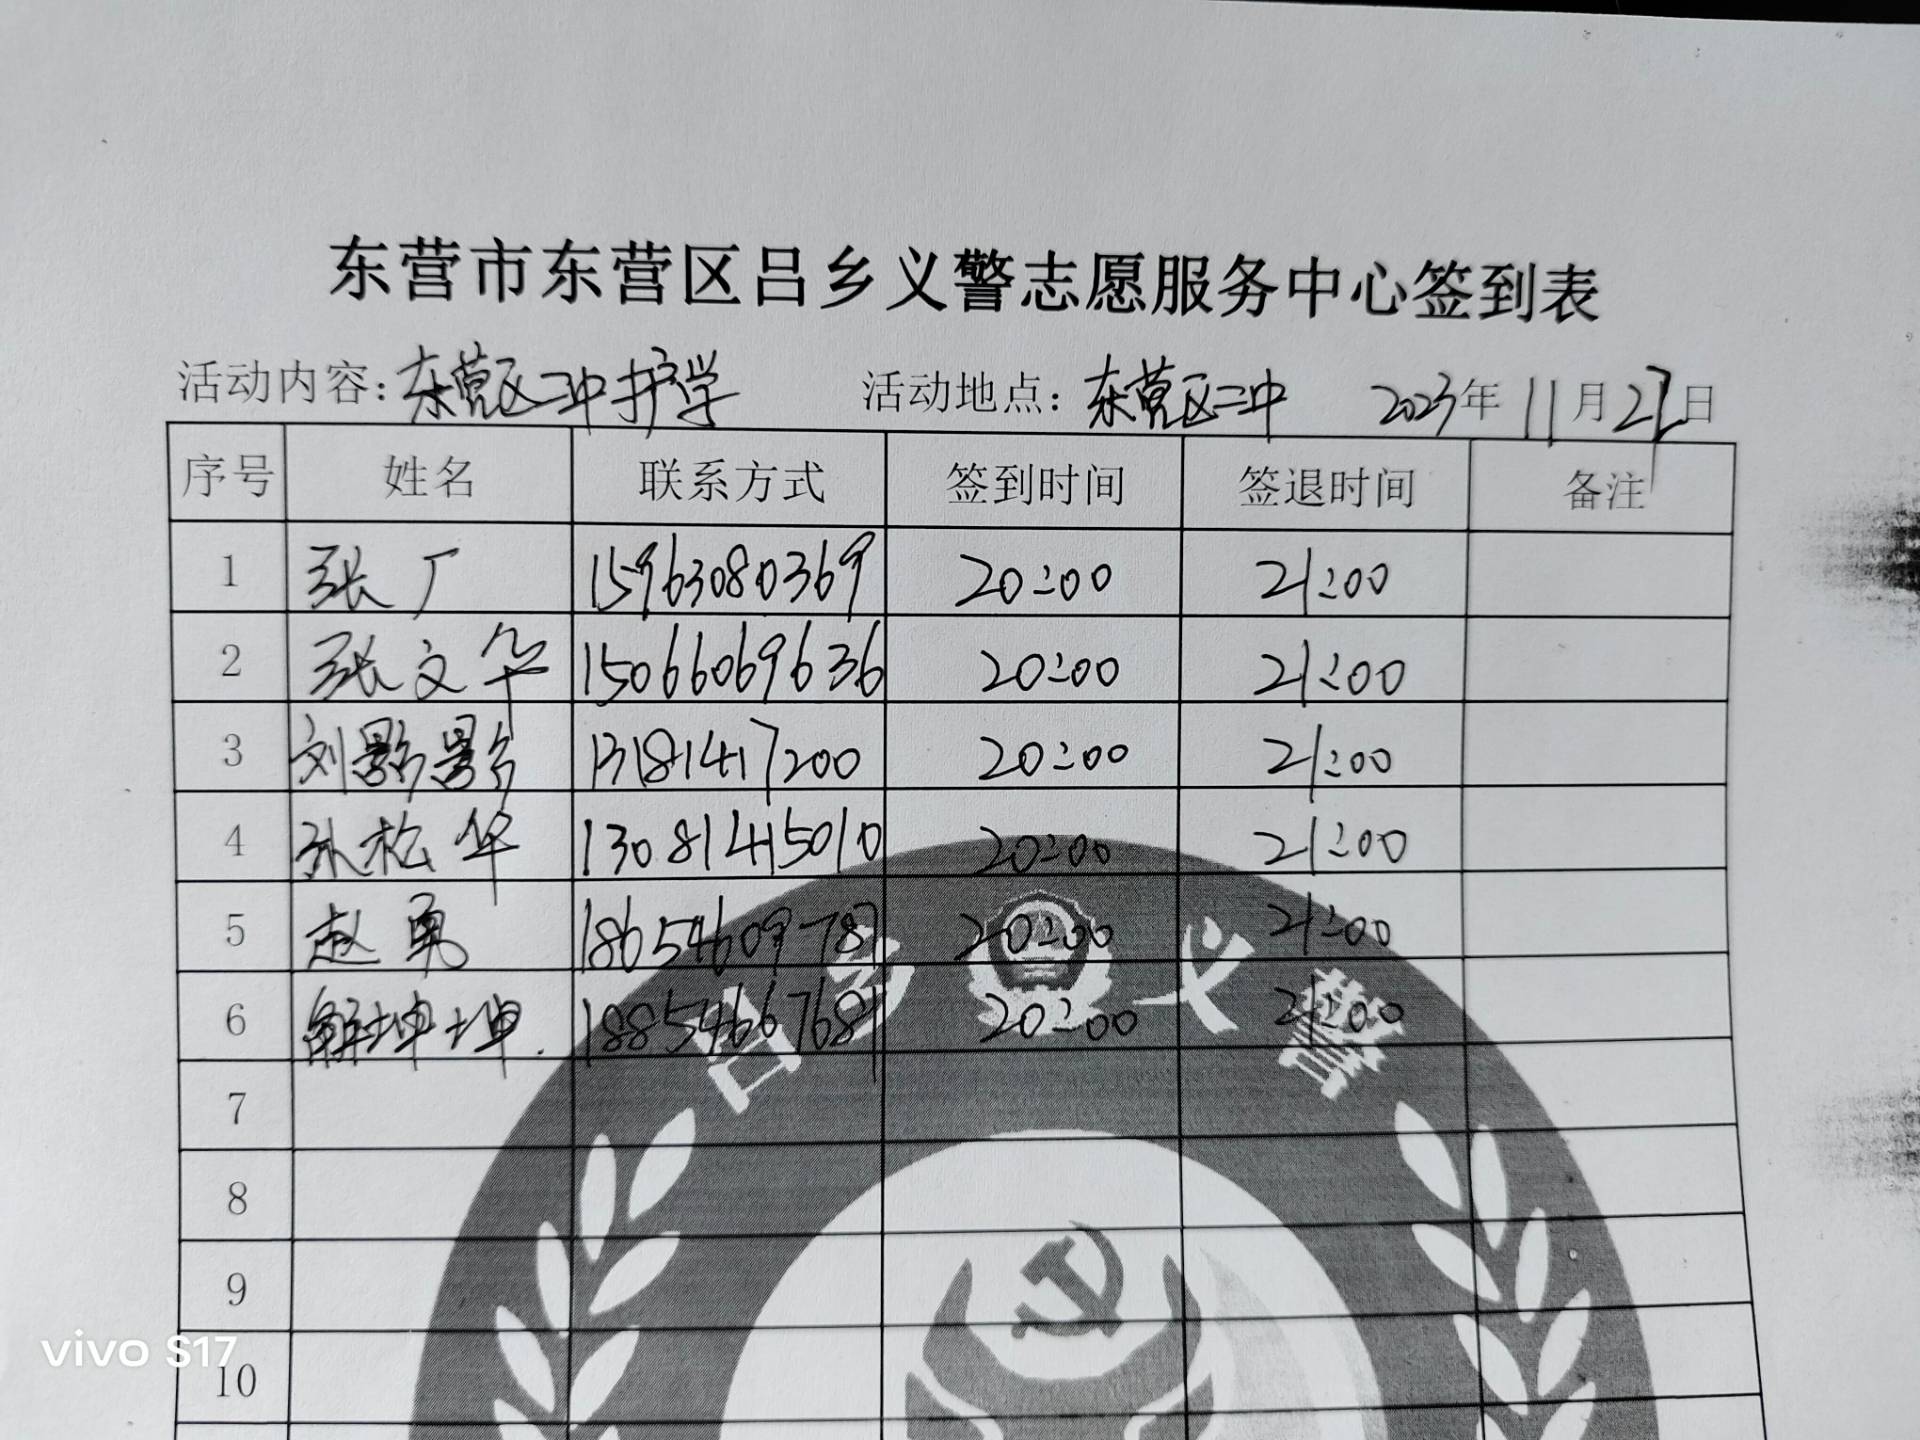 东营市东营区吕乡义警志愿服务中心签到表
活动内容：东营区二中护学 活动地点：东营区二中 2023年11月27日
序号 姓名 联系方式 签到时间 签退时间 备注
1 张广 15963080369 20:00 21:00
2 张文华 15066069636 20:00 21:00
3 刘影影 13181417200 20:00 21:00
4 孙松华 13081415010 20:00 21:00
5 赵勇 18654609787 20:00 21:00
6 解坤坤 18854667681 20:00 21:00
吕乡义警
7
8
9
10
vivo S17